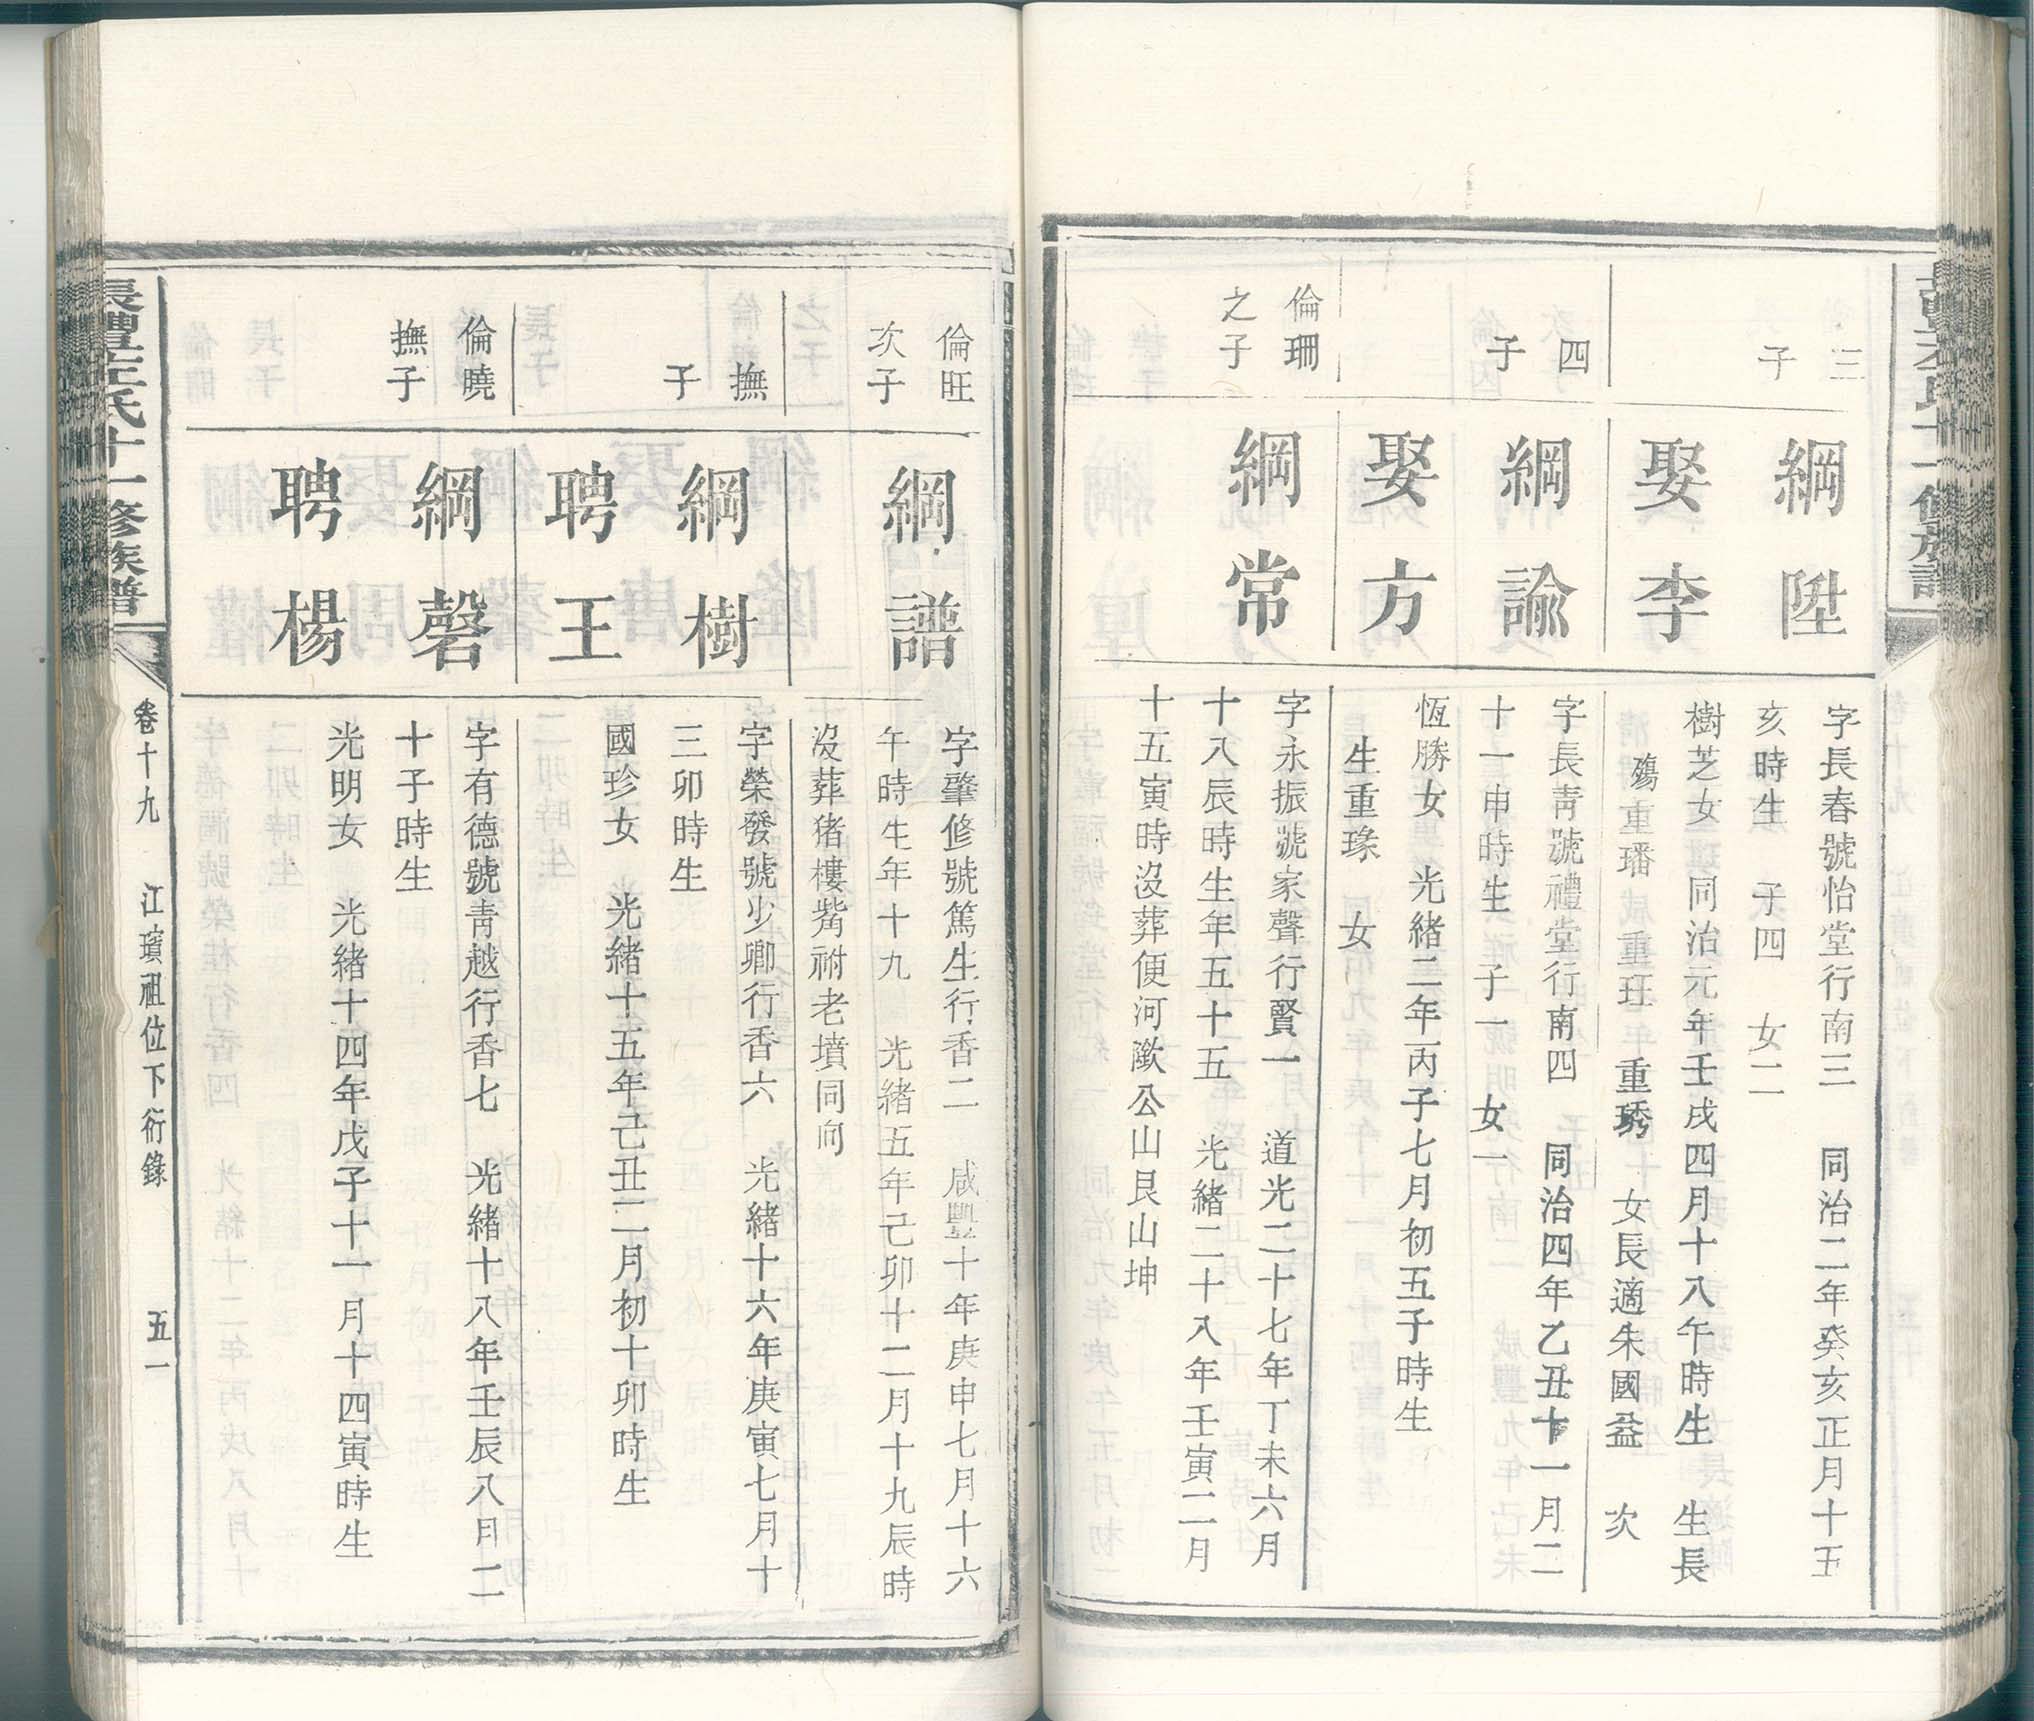 三
子
綱陞
字長春號怡堂行南三　同治二年癸亥正月十五
亥時生　子四　女二
娶李
樹芝女　同治元年壬戌四月十八午時生　生長
殤重璠　重玨　重琇　女長適朱國益　次
四
子
綱諭
字長靑號禮堂行南四　同治四年乙丑十一月二
十一申時生　子一　女一
娶方
恆勝女　光緒二年丙子七月初五子時生
生重瑑　女
倫珊
之子
綱常
字永振號家聲行賢一　道光二十七年丁未六月
十八辰時生年五十五　光緒二十八年壬寅二月
十五寅時沒葬便河歐公山艮山坤
倫旺
次子
綱譜
字肇修號篤生行香二　咸豐十年庚申七月十六
午時生年十九　光緒五年己卯十二月十九辰時
沒葬猪樓觜祔老墳同向
撫
子
綱樹
字榮發號少卿行香六　光緒十六年庚寅七月十
三卯時生
聘王
國珍女　光緒十五年己丑二月初十卯時生
倫曉
撫子
綱磬
字有德號靑越行香七　光緒十八年壬辰八月二
十子時生
聘楊
光明女　光緒十四年戊子十一月十四寅時生
左氏十一修族譜
卷十九　江璸祖位下衍錄　五一